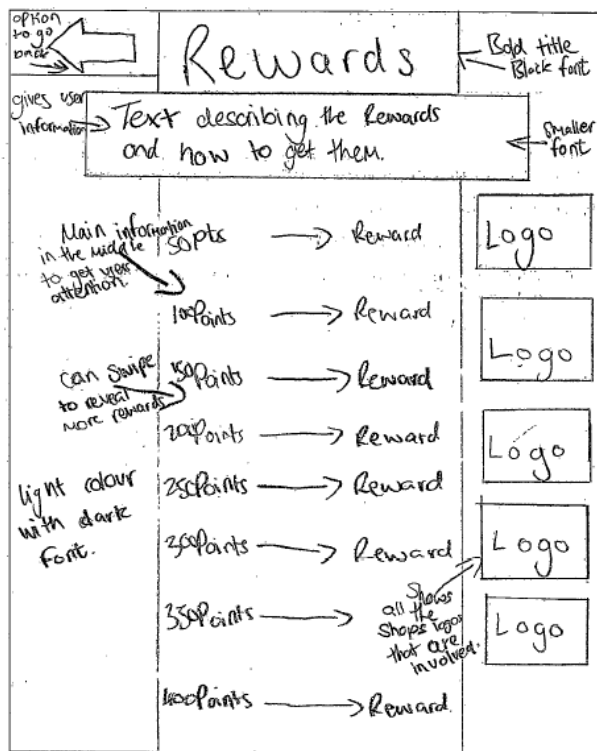 option
to go
back
Rewards
Bold title
Black font
gives user
information
Text describing the Rewards
and how to get them.
Smaller
font
Main information
in the middle
to get users
attention.
50pts
Reward
Logo
100Points
Reward
Logo
can swipe
to reveal
more rewards
150Points
Reward
200Points
Reward
Logo
light colour
with dark
font.
250Points
Reward
300Points
Reward
Logo
Shows
all the
Shops logos
that are
involved.
350Points
Logo
400Points
Reward.